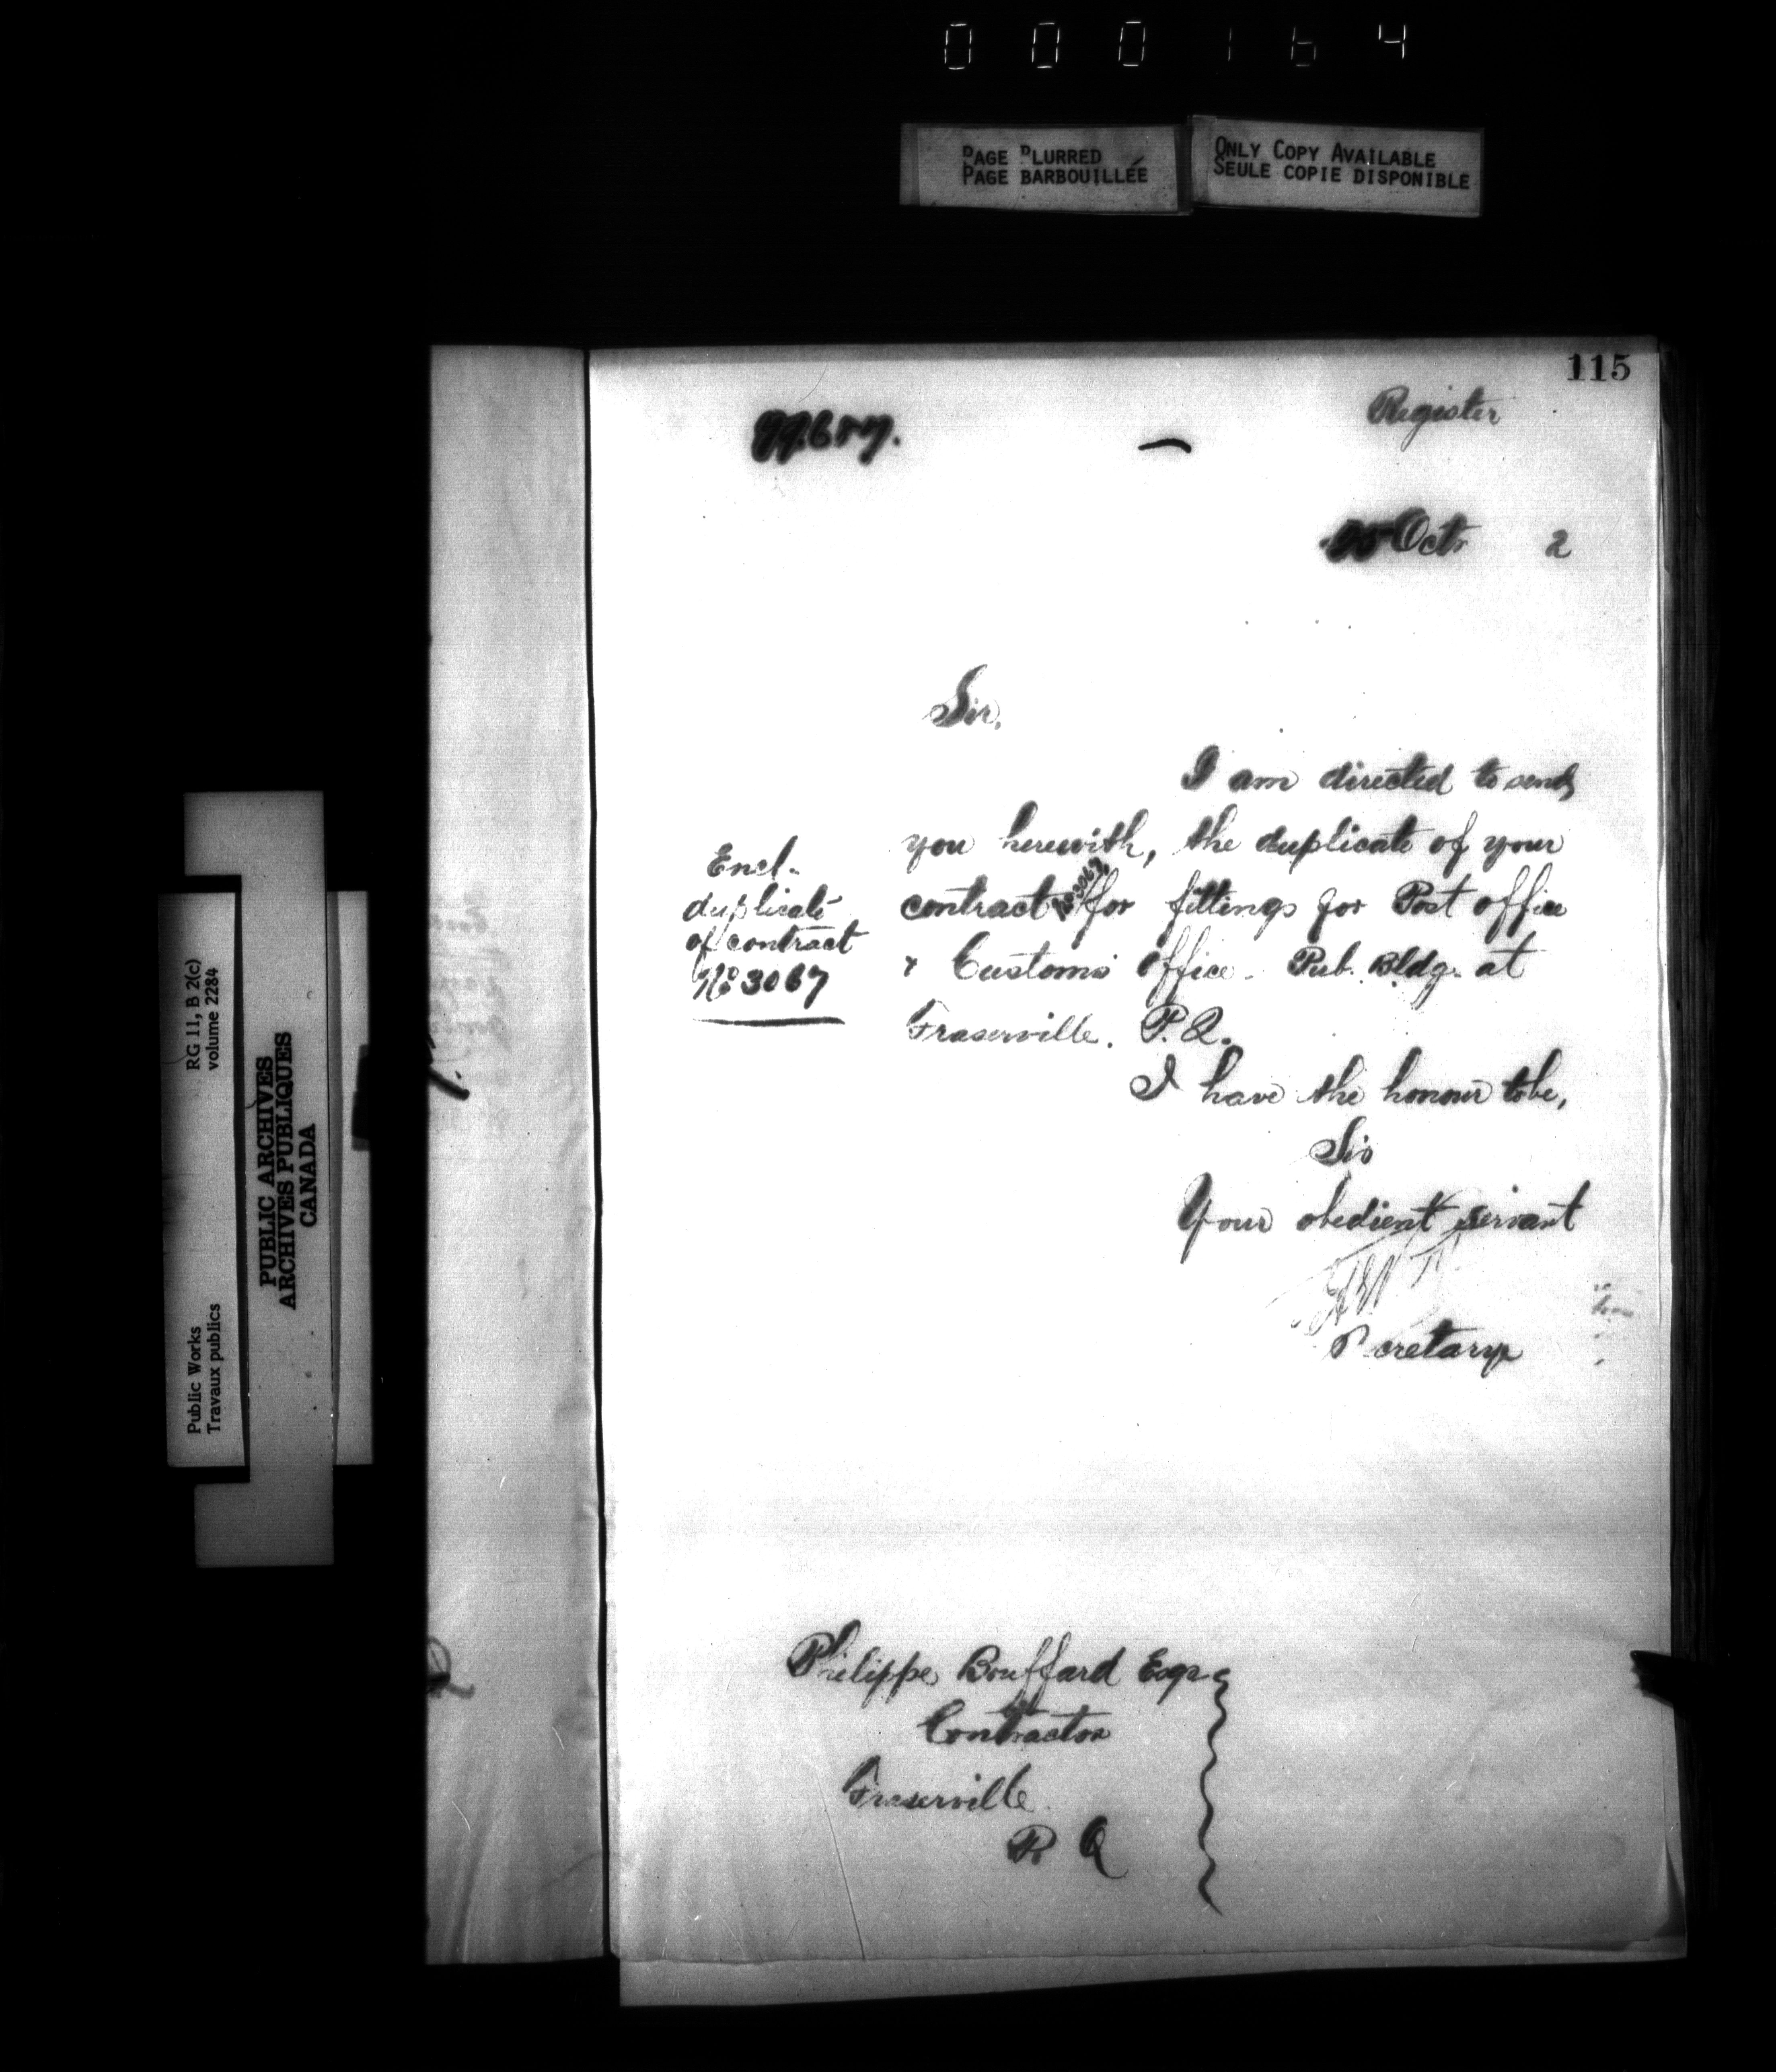 000164
PAGE BLURRED
PAGE BARBOUILLÉE
ONLY COPY AVAILABLE
SEULE COPIE DISPONIBLE
115
Register
Oct. 2
Sir,
I am directed to send
you herewith, the duplicate of your
contract No 3067 for fittings for Post office
& Customs office. Pub. Bldg. at
Fraserville. P.Q.
Encl.
duplicate
of contract
No 3067
I have the honour to be,
Sir
Your obedient servant
Secretary
Philippe Bouffard Esqr
Contractor
Fraserville
P. Q
RG 11, B 2(c)
volume 2284
PUBLIC ARCHIVES
ARCHIVES PUBLIQUES
CANADA
Public Works
Travaux publics